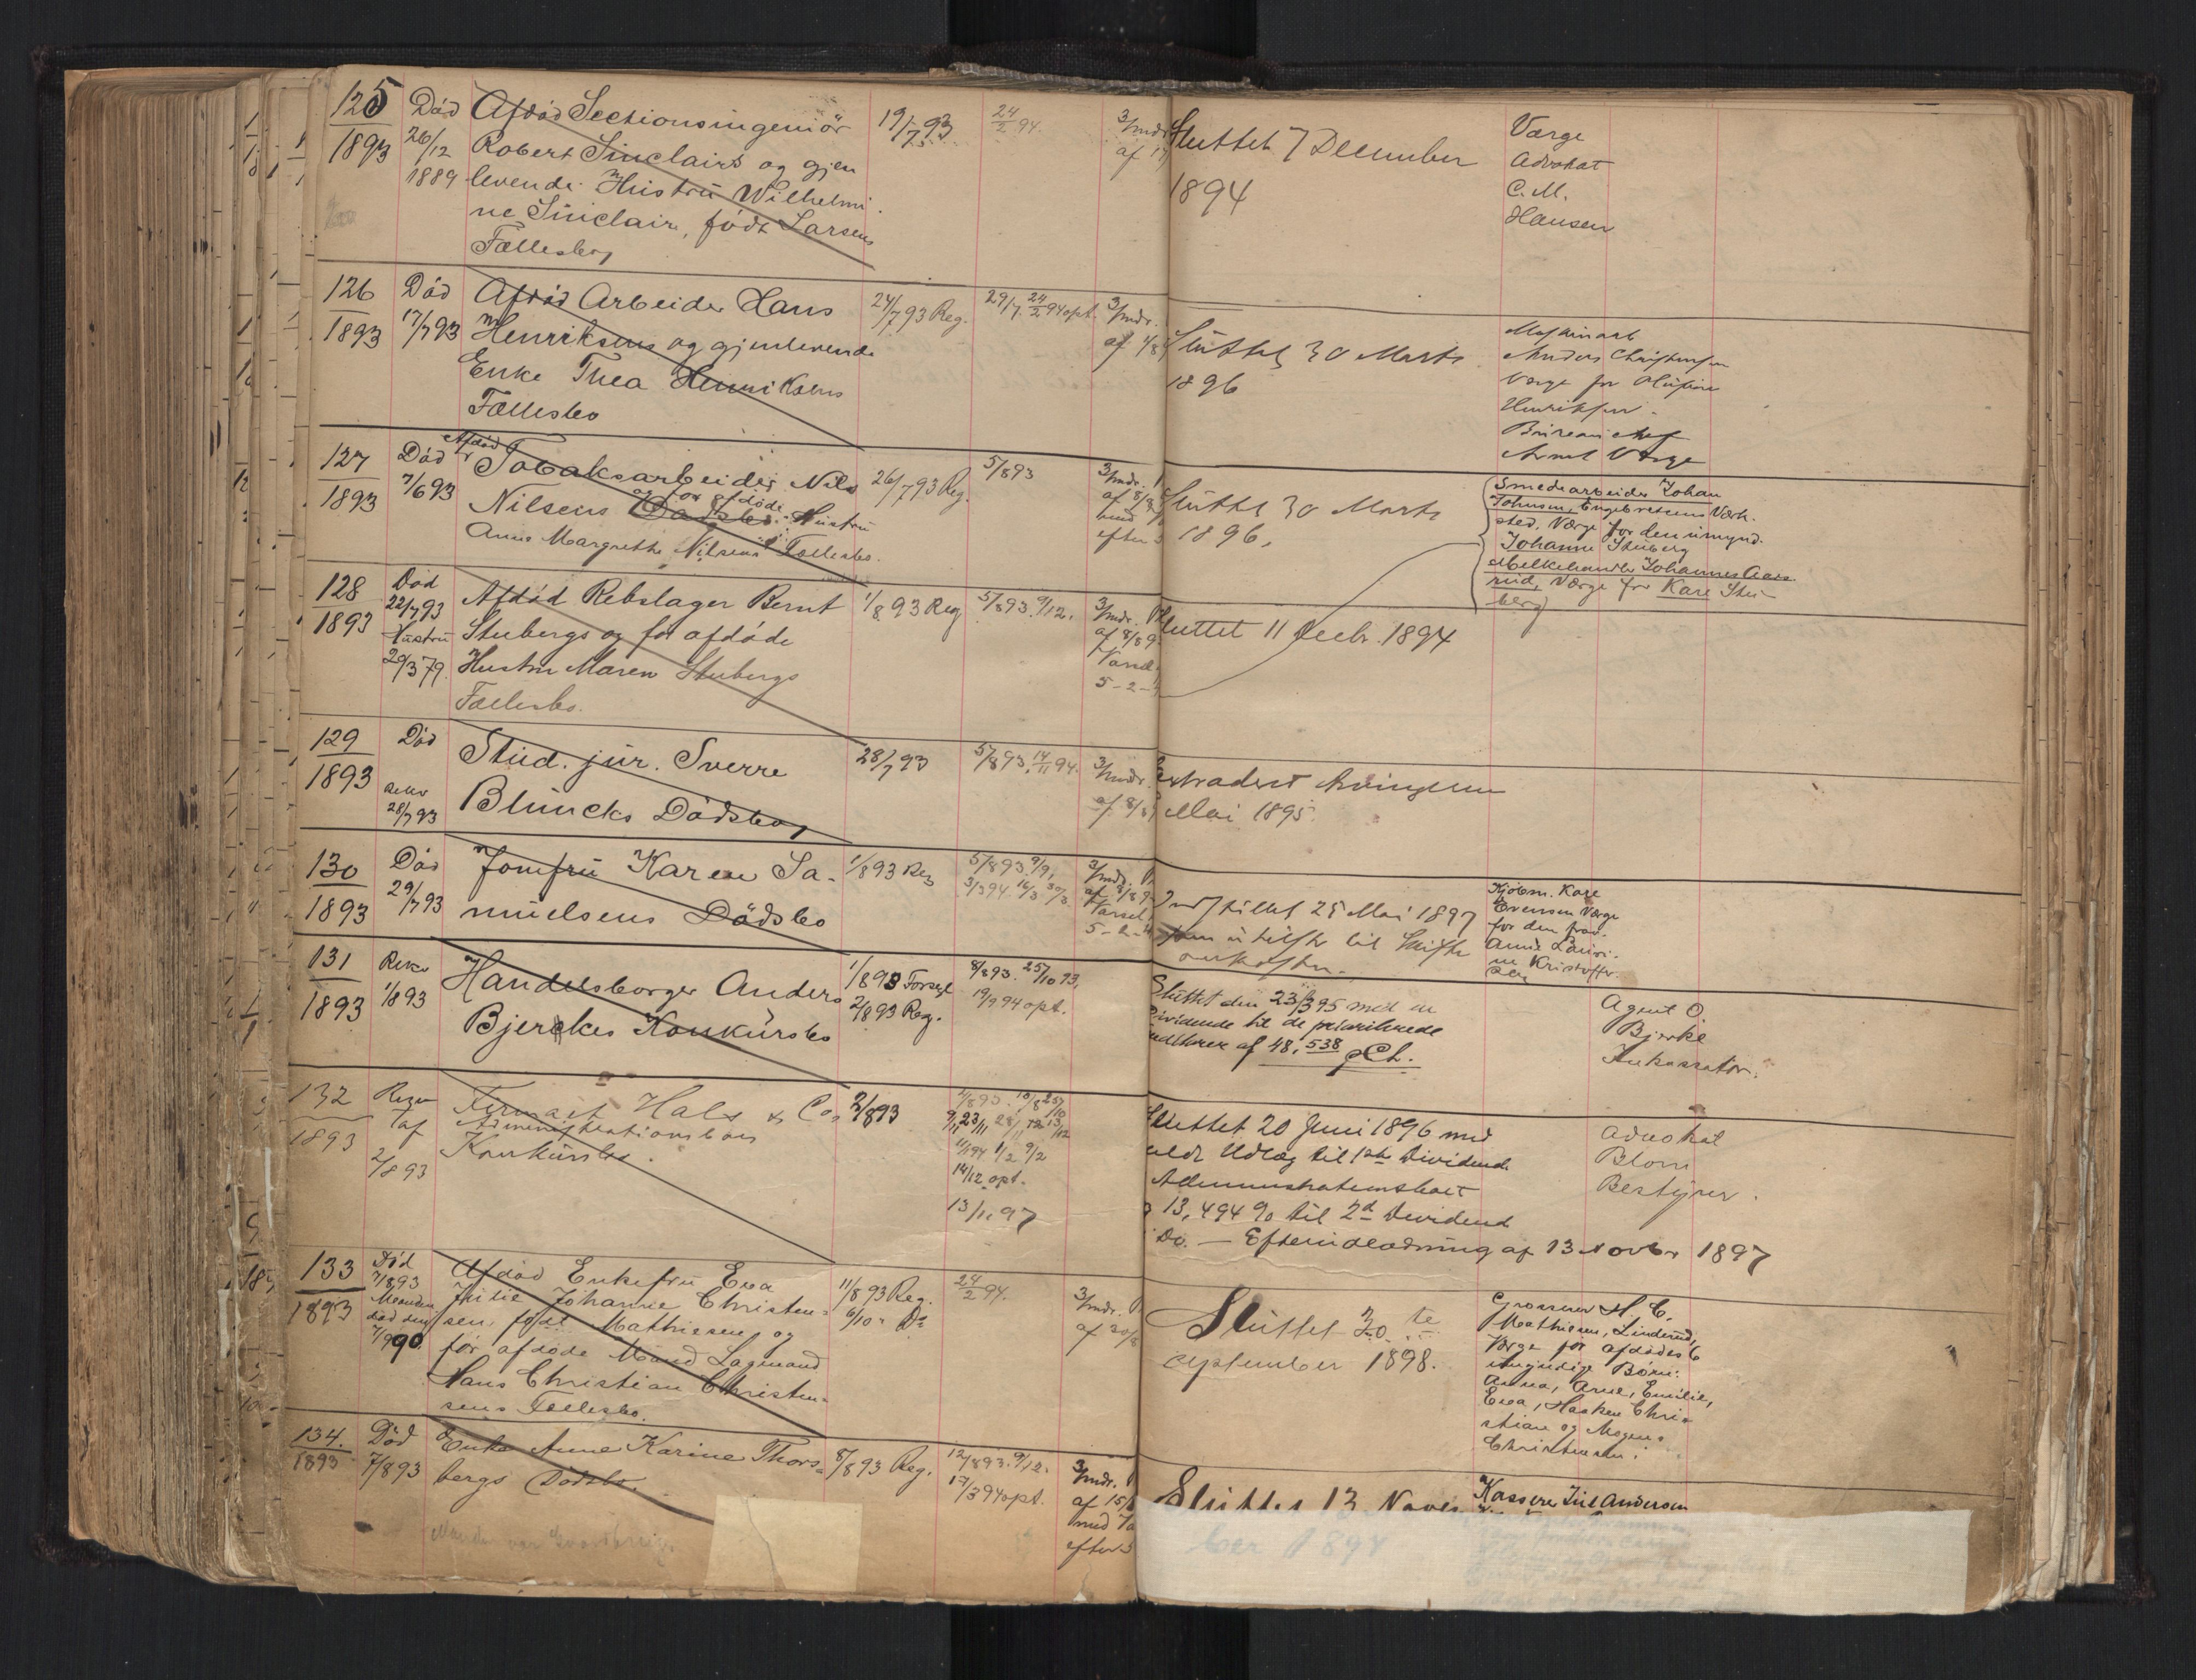 125
1893
Død
26/12
1889
Afdød Sectionsingeniør
Robert Sinclairs og gjen
levende Hustru Wilhelmi
ne Sinclair, født Larsens
Fællesbo
19/7 93
24/2 94.
3/mdr.
Sluttet 7 December
1894
Værge
Advokat
C. M.
Hansen
126
1893
Død
17/7 93
Afdød Arbeider Hans
Henriksens og gjenlevende
Enke Thea Henriksens
Fællesbo
24/7 93 Reg.
29/7. 24/2 94 opt.
3/mdr.
af 1/8
Sluttet 30 Marts
1896
Anders Christensen
Værge for
Henriksen.
Bureauchef
127
1893
Død
7/6 93
Afdød
Tobaksarbeider Nils
Nilsens og før afdøde Hustru
Anne Margrethe Nilsens Fællesbo.
26/7 93 Reg.
5/8 93
3/mdr.
af 8/8
med
efter
Sluttet 30 Marts
1896.
Smedearbeider Johan
Johnsen, Engebretsens Værk-
sted, Værge for den umynd.
Johanne Stuberg
Melkehandler Johannes Aas
rud, Værge for Kare Stu-
berg
128
1893
Død
22/7 93
Hustru
29/3 79.
Afdød Rebslager Bernt
Stubergs og før afdøde
Hustru Maren Stubergs
Fællesbo.
1/8 93 Reg
5/8 93. 9/12.
3/mdr.
af 8/8 9
Varsel
5 - 2 -
Sluttet 11 Decbr. 1894
129
1893
Død
28/7 93
Stud. jur. Sverre
Bluncks Dødsbo
28/7 93
5/8 93. 14/11 94.
3/mdr.
af 8/8
extraderet Arvingerne
Mai 1895.
130
1893
Død
29/7 93
Jomfru Karen Sa-
muelsens Dødsbo
1/8 93 Reg
5/8 93. 9/9,
3/3 94. 16/3 30/3.
3/mdr.
af 8/8 9
Varsel
5 - 2 -
25 Mai 1897
Kjøbm. Kare
Evensen Værge
for den frav.
Anne Lauri-
ne Kristoffer-
sen
131
1893
Rekv
1/8 93
Handelsborger Anders
Bjerckes Konkursbo
1/8 93 Forsegl
2/8 93 Reg.
8/8 93. 25/10 93,
19/9 94 opt.
Sluttet den 23/3 95 med en
Dividende til de prioriterede
af 48,538 pCt.
Agent O.
Bjerke
Inkassator.
132
1893
2/8 93
Firmaet Hals & Co,
Administrationsbo
Konkursbo.
2/8 93
14/12 opt.
13/11 97
Sluttet 20 Juni 1896 med
Udlæg til 1ste Dividende
Administrationsboet
13,494 % til 2d Dividend
Do. - Efterindkaldning af 13 Novbr 1897
Advokat
Blom
Bestyrer.
133
1893
Død
7/8 93
Manden
død den
7/9 90
Afdød Enkefru Eva
Julie Johanne Christen-
sen, født Mathiesen, og
før afdøde Mand Lagmand
Hans Christian Christen-
sens Fællesbo.
11/8 93 Reg.
6/10 " Do
24/2 94.
3/mdr.
Sluttet 30te
September 1898.
Grosserer H. C.
Mathiesen, Linderud,
Værge for afdødes 6
umyndige Børn:
Anna, Arne, Emilie,
Eva, Haaken Chri-
stian og Mogens
Christensen.
134.
1893
Død
7/8 93
Enke Anne Karine Thors-
bergs Dødsbo.
8/8 93 Reg.
12/8 93. 9/12.
17/3 94 opt.
3/mdr.
af 15/8
med
efter
Manden var
Sluttet 13 Novem
ber 1894
Kasserer Juel Andersen